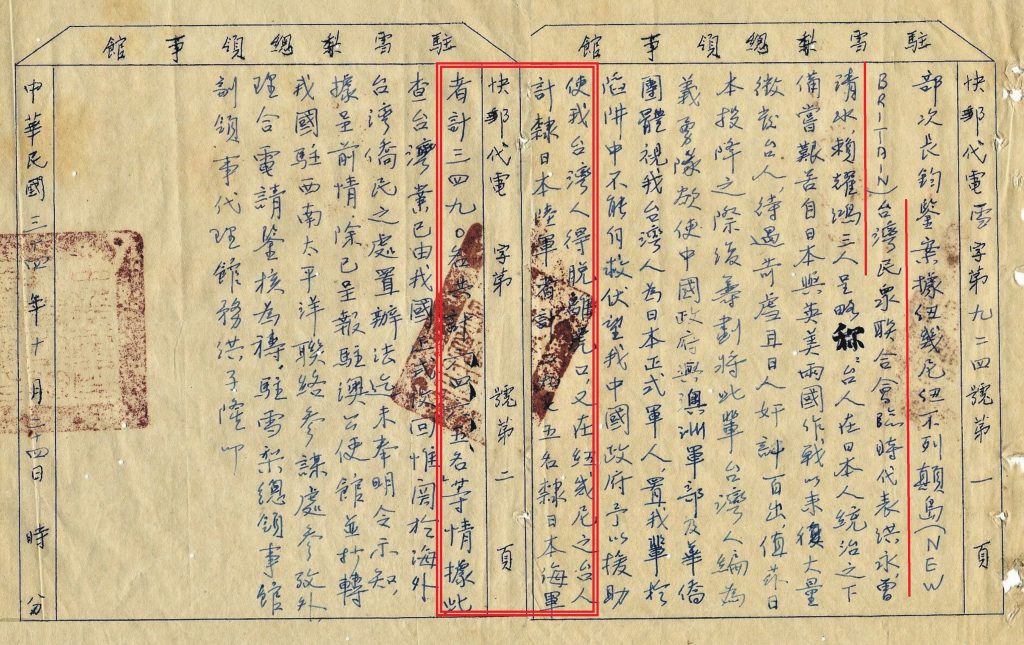 駐雪梨總領事館
快郵代電雪字第九二四號第一頁
部次長鈞鑒案據紐幾尼紐不列顛島(NEW
BRITAIN)台灣民眾聯合會臨時代表洪永,曾
清水,賴耀鴻三人呈略称:台人在日本人統治之下
備嘗艱苦自日本與英美兩國作戰以來復大量
徵發台人,待遇苛虐且日人奸計百出,值茲日
本投降之際復籌劃將此輩台灣人編為
義勇隊故使中國政府與澳洲軍部及華僑
團體視我台灣人為日本正式軍人,置我輩於
陷阱中不能自救伏望我中國政府予以援助
使我台灣人得脫離虎口,又在紐幾尼之台人
計隸日本陸軍者計七五名隸日本海軍
駐雪梨總領事館
快郵代電 字第 號第二頁
者計三四九〇名共計五名」等情據此
查台灣業已由我國正式收回惟關於海外
台灣僑民之處置辦法迄未奉明令示知,
據呈前情除已呈報駐澳公使館並抄轉
我國駐西南太平洋聯絡參謀處參攷外
理合電請鑒核為禱,駐雪梨總領事館
副領事代理館務洪子隆叩
中華民國三四年十月二十四日 時 分